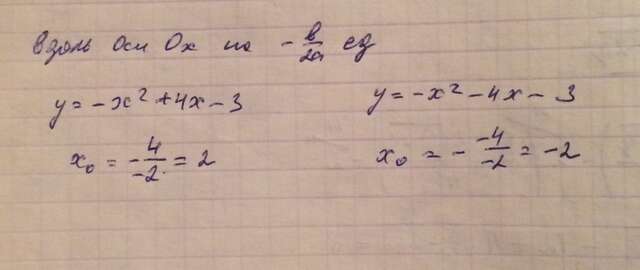 вдоль оси Ox на -b/2a ед
y = -x² + 4x - 3
x₀ = - 4/-2 = 2
y = -x² - 4x - 3
x₀ = - -4/-2 = -2